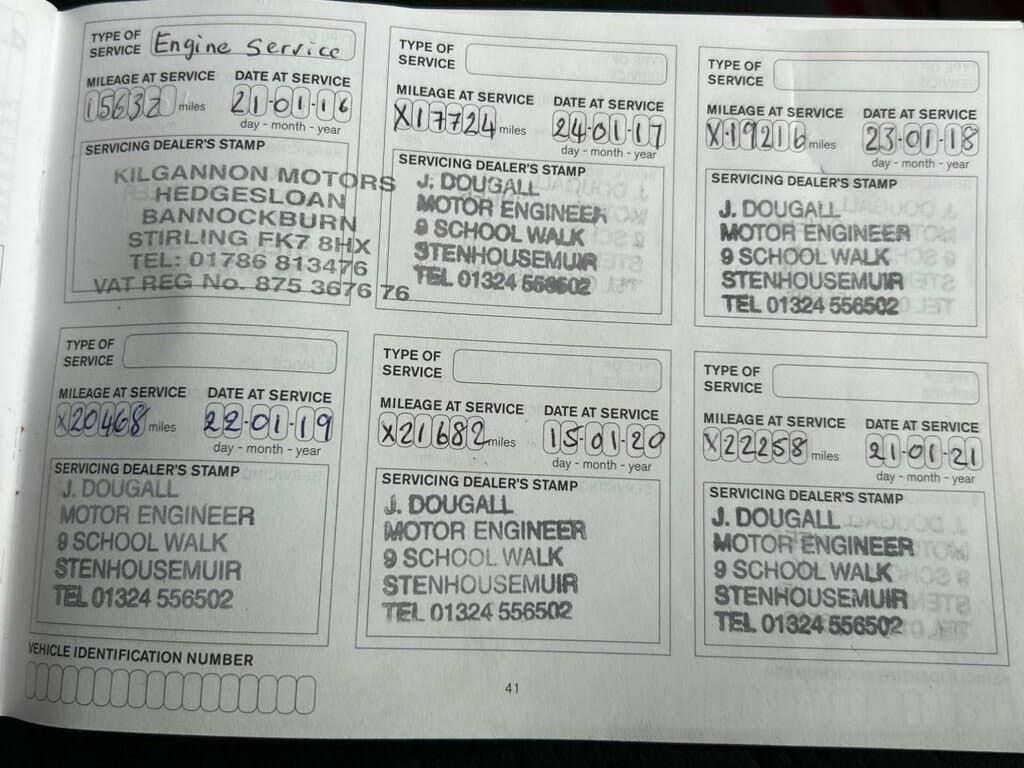 TYPE OF SERVICE Engine Service
MILEAGE AT SERVICE DATE AT SERVICE
15632 miles 21-01-16
day - month - year
SERVICING DEALER'S STAMP
KILGANNON MOTORS
HEDGESLOAN
BANNOCKBURN
STIRLING FK7 8HX
TEL: 01786 813476
VAT REG No. 875 3676 76
TYPE OF SERVICE
MILEAGE AT SERVICE DATE AT SERVICE
X17724 miles 24-01-17
day - month - year
SERVICING DEALER'S STAMP
J. DOUGALL
MOTOR ENGINEER
9 SCHOOL WALK
STENHOUSEMUIR
TEL 01324 556502
TYPE OF SERVICE
MILEAGE AT SERVICE DATE AT SERVICE
X19216 miles 23-01-18
day - month - year
SERVICING DEALER'S STAMP
J. DOUGALL
MOTOR ENGINEER
9 SCHOOL WALK
STENHOUSEMUIR
TEL 01324 556502
TYPE OF SERVICE
MILEAGE AT SERVICE DATE AT SERVICE
X20468 miles 22-01-19
day - month - year
SERVICING DEALER'S STAMP
J. DOUGALL
MOTOR ENGINEER
9 SCHOOL WALK
STENHOUSEMUIR
TEL 01324 556502
TYPE OF SERVICE
MILEAGE AT SERVICE DATE AT SERVICE
X21682 miles 15-01-20
day - month - year
SERVICING DEALER'S STAMP
J. DOUGALL
MOTOR ENGINEER
9 SCHOOL WALK
STENHOUSEMUIR
TEL 01324 556502
TYPE OF SERVICE
MILEAGE AT SERVICE DATE AT SERVICE
X22258 miles 21-01-21
day - month - year
SERVICING DEALER'S STAMP
J. DOUGALL
MOTOR ENGINEER
9 SCHOOL WALK
STENHOUSEMUIR
TEL 01324 556502
VEHICLE IDENTIFICATION NUMBER
41